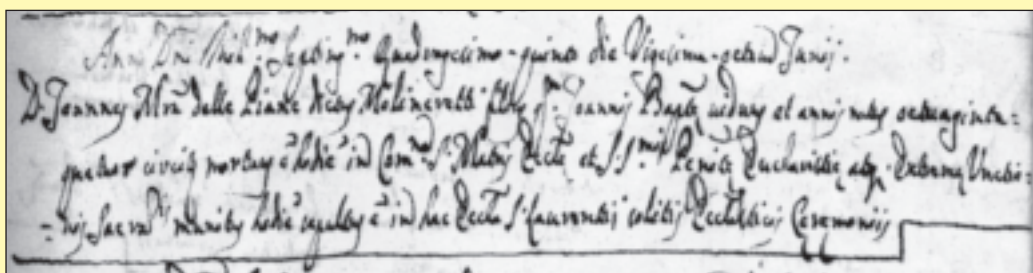 Anno Dni Mill.mo Septing.mo Quadragesimo-quinto die Vigesima-octava Junij.
D. Joannes Mra delle Piane dictus Molinaretti filius q.m Joannis Bapte viduus et annis natus octuaginta-
quatuor circiter mortuus e hodie in Com.ne S. Matris Eccle et S.S.mis Penite Eucharistie atq. Extreme Unctio-
-nis Sacratis munitus hodie sepultus e in hac Eccla S. Laurentij solitis Eccleticis Ceremonijs